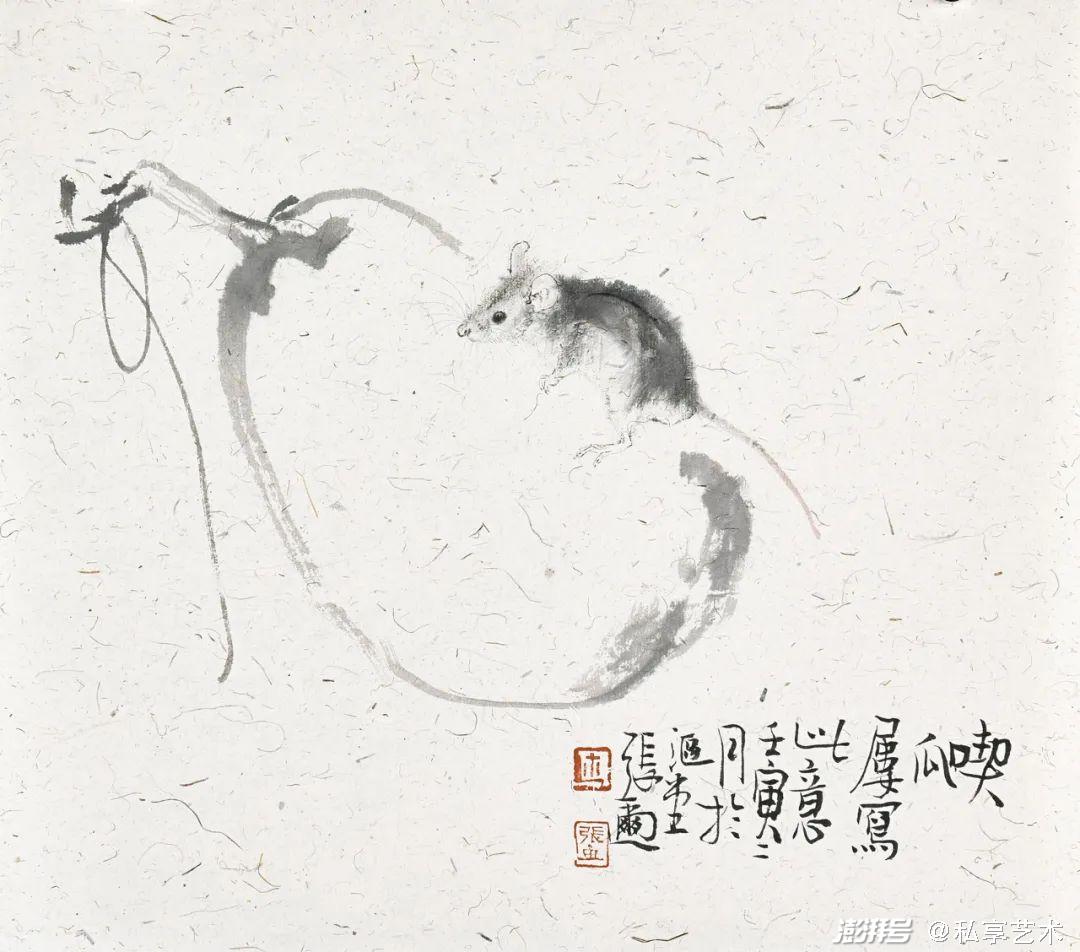 喫
瓜
屢寫
此意
壬寅二
月於
張
張
澎湃号 @私享艺术